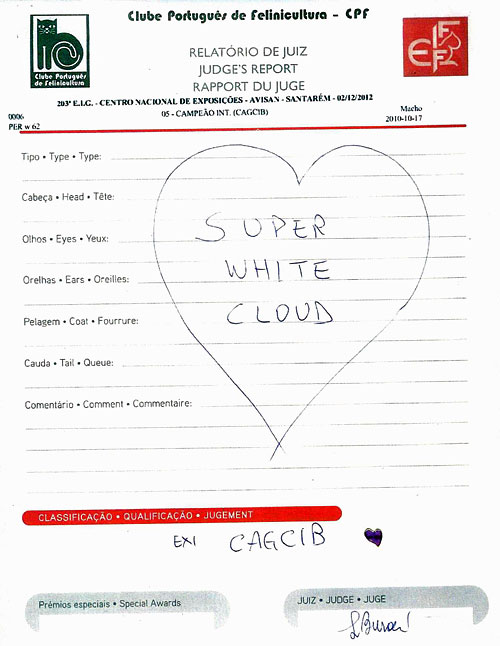 Clube Português de Felinicultura - CPF
Clube Português
de Felinicultura
FIFe
RELATÓRIO DE JUIZ
JUDGE'S REPORT
RAPPORT DU JUGE
203ª E.I.G. - CENTRO NACIONAL DE EXPOSIÇÕES - AVISAN - SANTARÉM - 02/12/2012
05 - CAMPEÃO INT. (CAGCIB)
0006
PER w 62
Macho
2010-10-17
Tipo • Type • Type:
Cabeça • Head • Tête:
Olhos • Eyes • Yeux:
Orelhas • Ears • Oreilles:
Pelagem • Coat • Fourrure:
Cauda • Tail • Queue:
Comentário • Comment • Commentaire:
SUPER
WHITE
CLOUD
CLASSIFICAÇÃO • QUALIFICAÇÃO • JUGEMENT
EX1 CAGCIB
Prémios especiais • Special Awards
JUIZ • JUDGE • JUGE